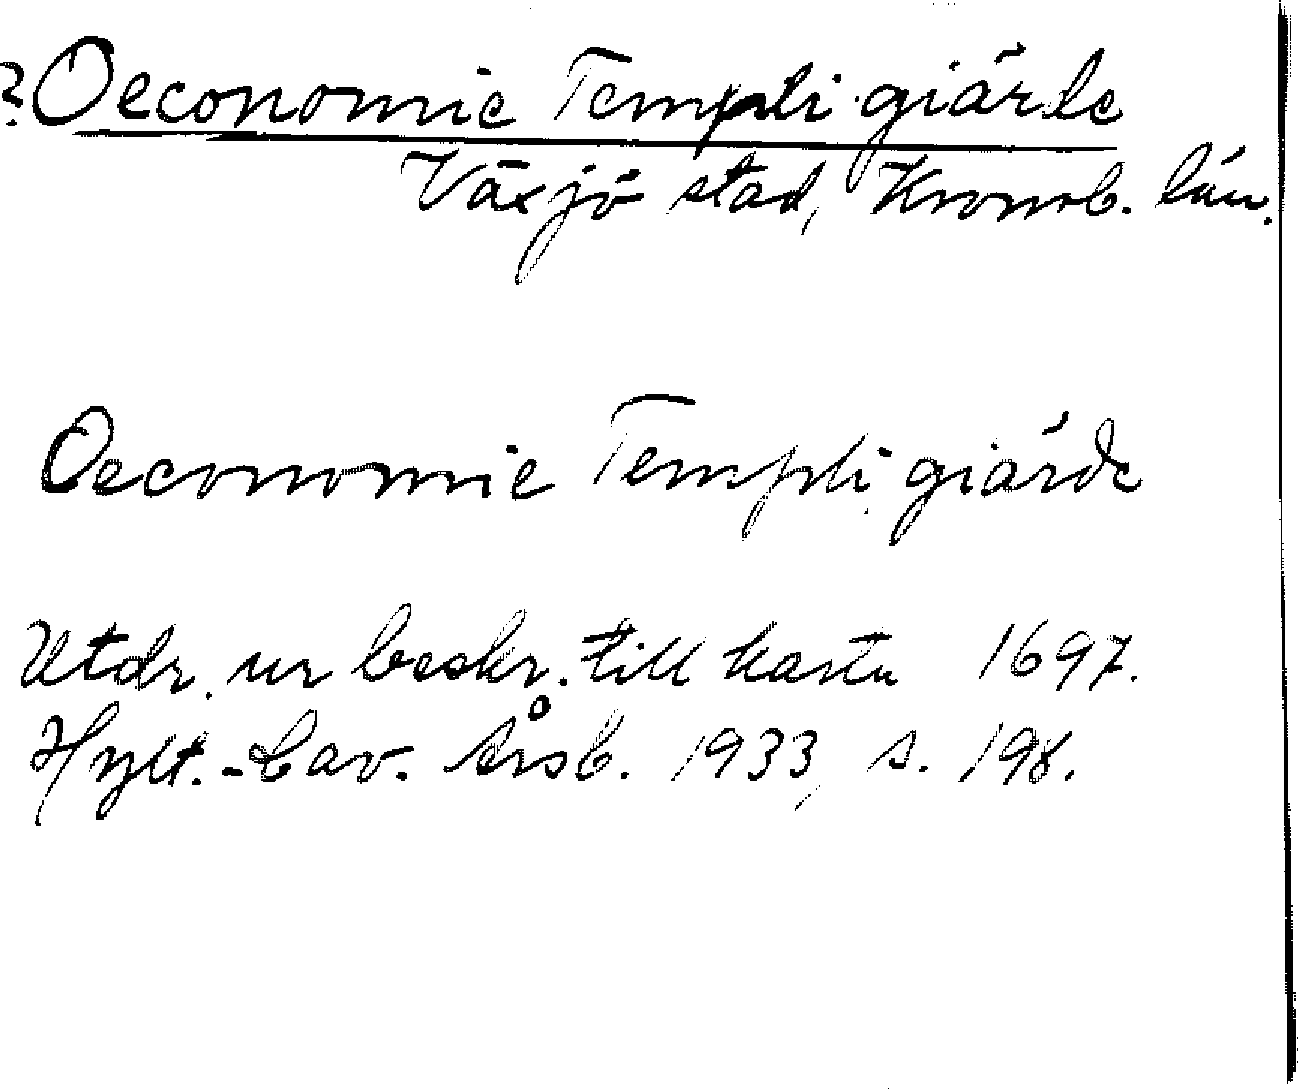 ? Oeconomie Templi giärde
Växjö stad, Kronob. län.
Oeconomie Templi giärde
Utdr. ur beskr. till karta 1697.
Hylt.-Cav. Årsb. 1933, s. 198.